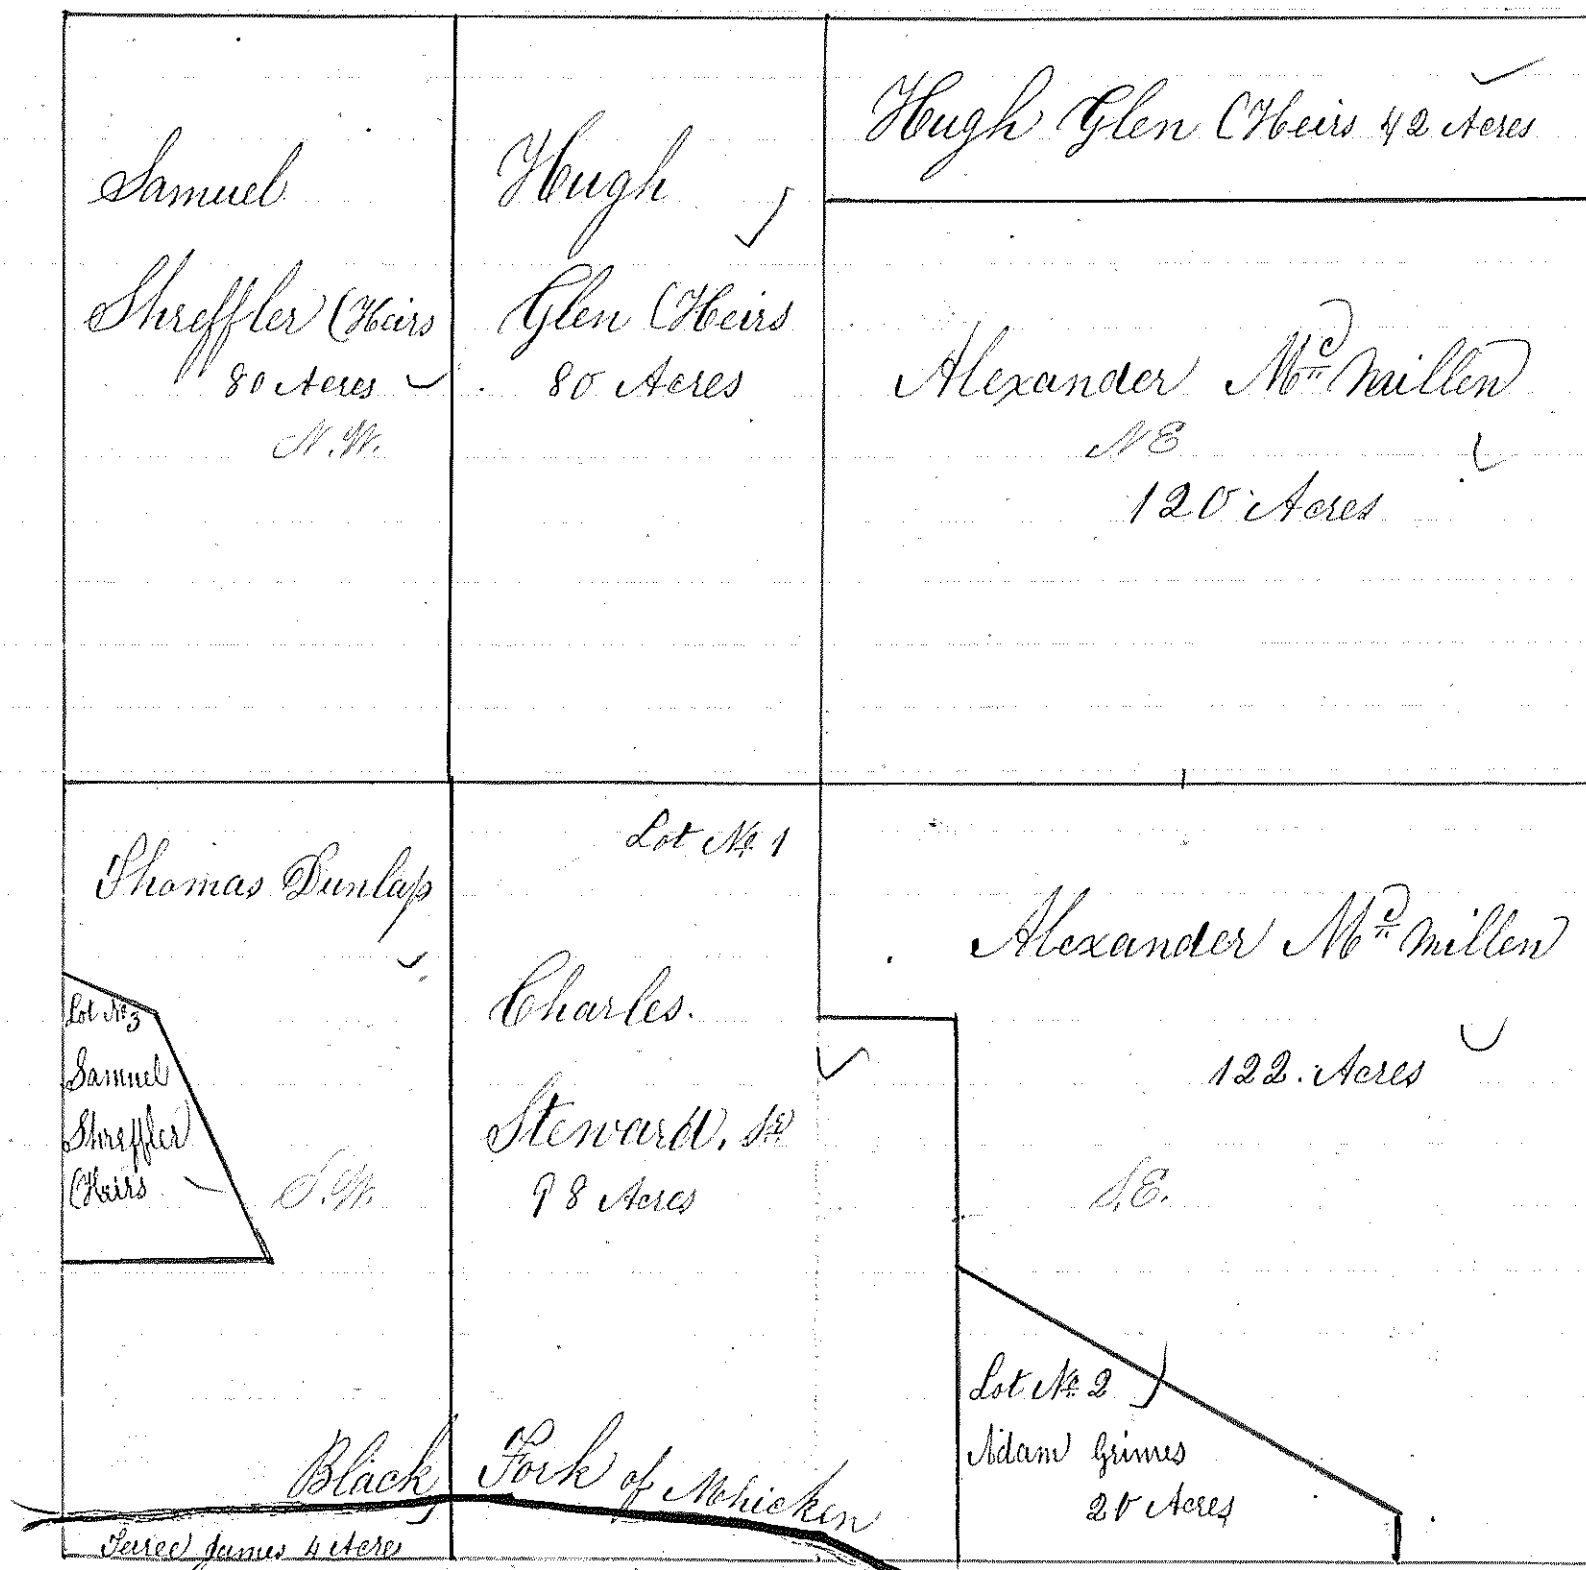 Samuel
Shreffler (Heirs
80 Acres
N.W.
Hugh
Glen (Heirs
80 Acres
Hugh Glen (Heirs 42 Acres
Alexander Mc millen
NE
120 Acres
Thomas Dunlap
Lot No 3
Samuel
Shreffler
(Heirs
S.W.
Lot No 1
Charles.
Steward, Sr
98 Acres
Alexander Mc millen
122. Acres
S.E.
Lot No 2
Adam Grimes
20 Acres
Black Fork of Mohicken
James 4 Acres